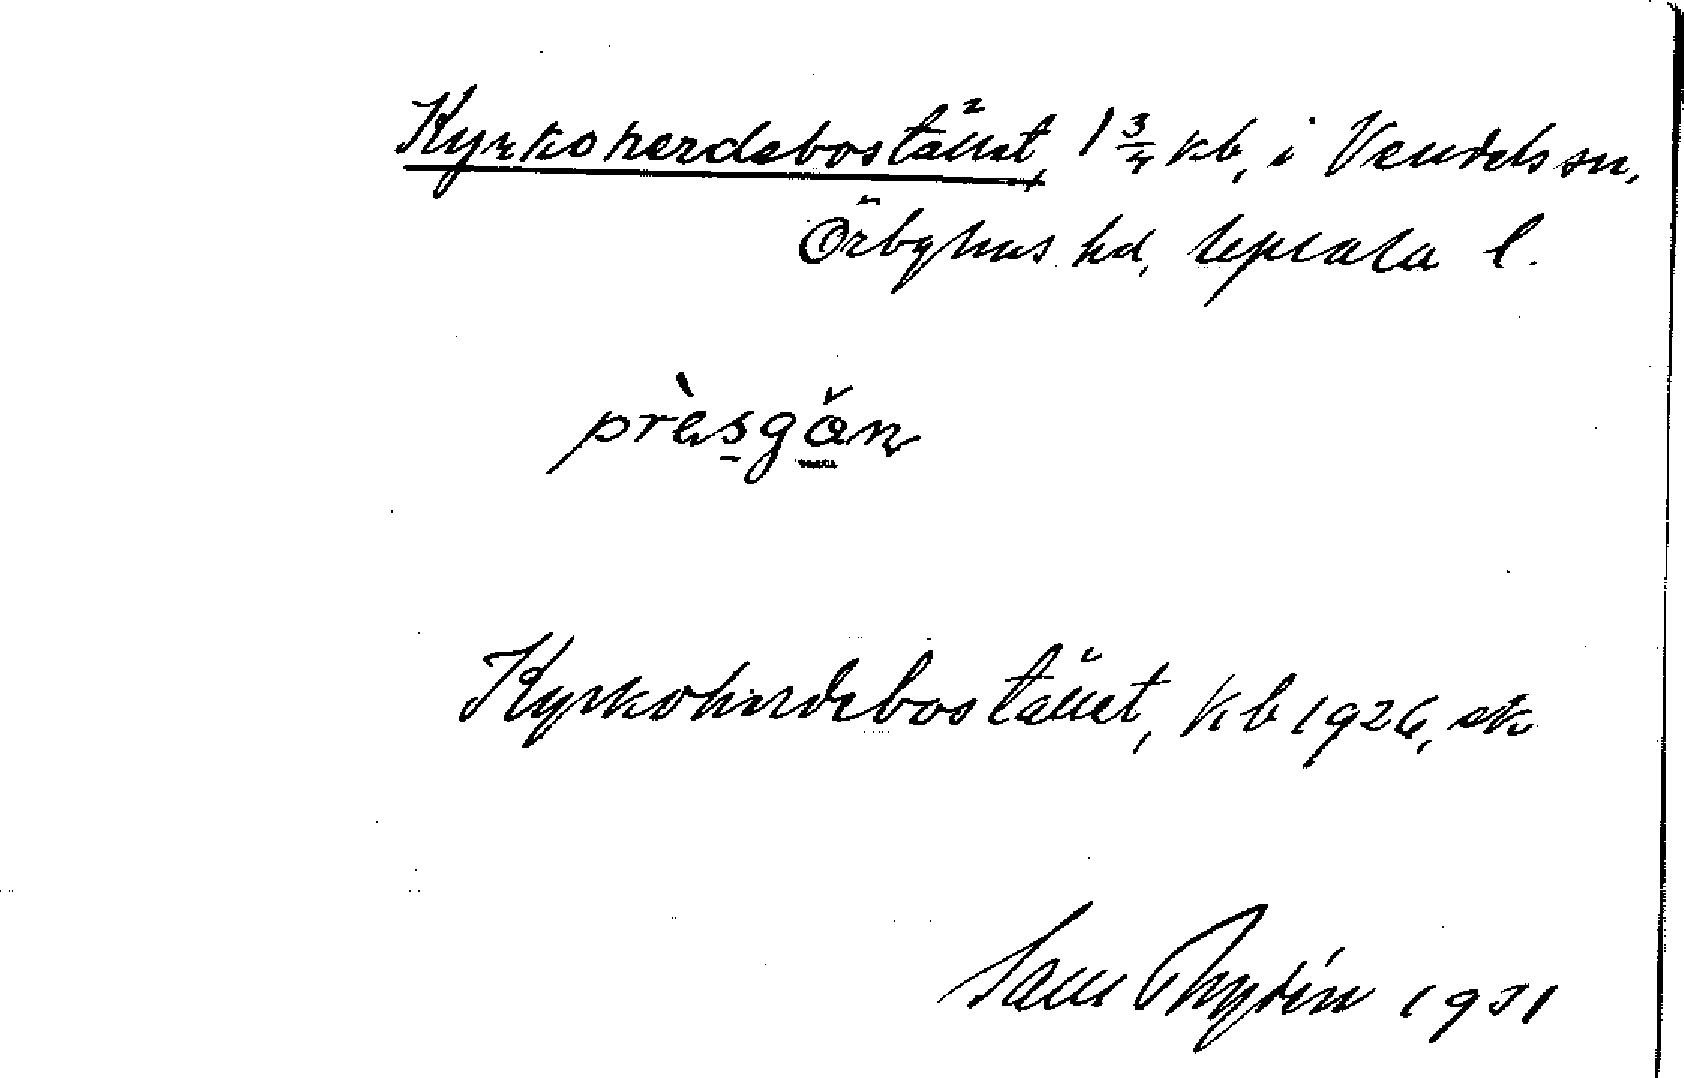 Kyrkoherdebostället, 1 3/4 kb, i Vendels sn,
Örbyhus hd, Uppsala l.
prèsgǒn
Kyrkoherdebostället, kb 1926, ek
Sam 1931